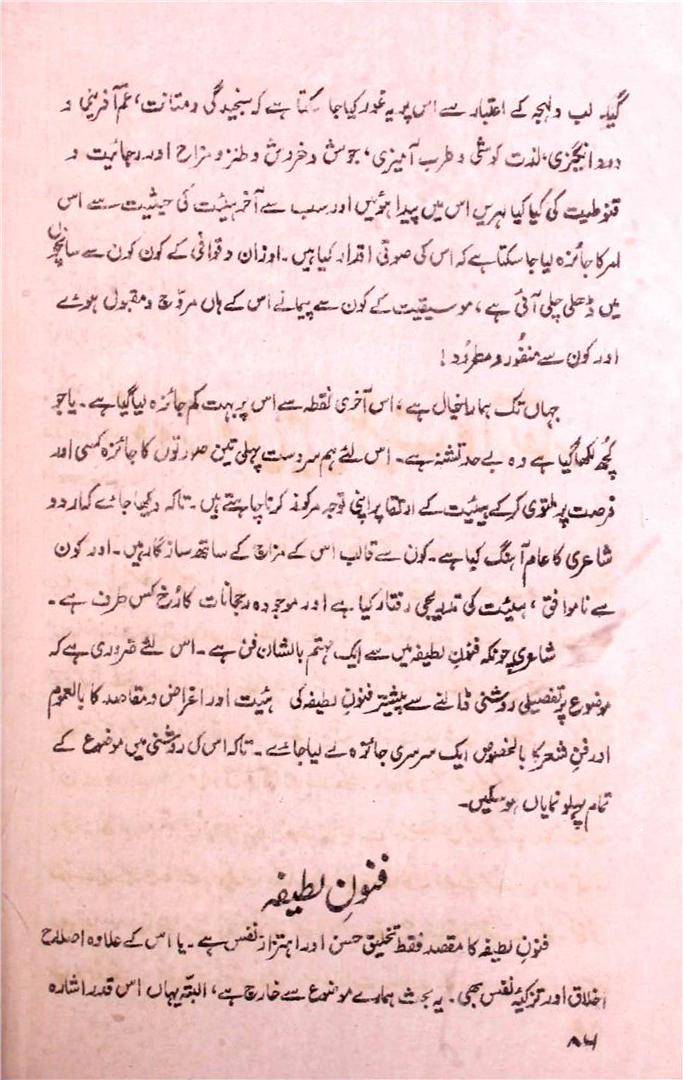 گیا۔ لب و لہجہ کے اعتبار سے اس پر یہ غور کیا جا سکتا ہے کہ سنجیدگی و متانت، غم آفرینی و
درد انگیزی، لذت کوشی و طرب آمیزی، جوش و خروش و طنز و مزاح اور رجائیت و
قنوطیت کی کیا کیا لہریں اس میں پیدا ہوئیں اور سب سے آخر ہیئت کی حیثیت سے اس
امر کا جائزہ لیا جا سکتا ہے کہ اس کی صوتی اقدار کیا ہیں۔ اوزان و قوافی کے کون کون سے سانچوں
میں ڈھلی چلی آئی ہے، موسیقیت کے کون سے پیمانے اس کے ہاں مروّج و مقبول ہوئے
اور کون سے منفُور و مطرُود!
جہاں تک ہمارا خیال ہے، اس آخری نقطہ سے اس پر بہت کم جائزہ لیا گیا ہے۔ یا جو
کچھ لکھا گیا ہے وہ بے حد تشنہ ہے۔ اس لئے ہم سر دست پہلی تین صورتوں کا جائزہ کسی اور
فرصت پر ملتوی کر کے ہیئت کے ارتقا پر اپنی توجہ مرکوز کرنا چاہتے ہیں۔ تاکہ دیکھا جائے کہ اردو
شاعری کا عام آہنگ کیا ہے۔ کون سے قالب اس کے مزاج کے ساتھ ساز گار ہیں۔ اور کون
سے ناموافق، ہیئت کی تدریجی رفتار کیا ہے اور موجودہ رجحانات کا رُخ کس طرف ہے۔
شاعری چونکہ فنونِ لطیفہ میں سے ایک مہتم بالشان فن ہے۔ اس لئے ضروری ہے کہ
موضوع پر تفصیلی روشنی ڈالنے سے پیشتر فنونِ لطیفہ کی ہئیت اور اغراض و مقاصد کا بالعموم
اور فنِ شعر کا بالخصوص ایک سرسری جائزہ لے لیا جائے۔ تاکہ اس کی روشنی میں موضوع کے
تمام پہلو نمایاں ہو سکیں۔
فنونِ لطیفہ
فنونِ لطیفہ کا مقصد فقط تخلیقِ حسن اور اہتزازِ نفس ہے۔ یا اس کے علاوہ اصلاح
اخلاق اور تزکیۂ نفس بھی۔ یہ بحث ہمارے موضوع سے خارج ہے، البتّہ یہاں اس قدر اشارہ
۸۶